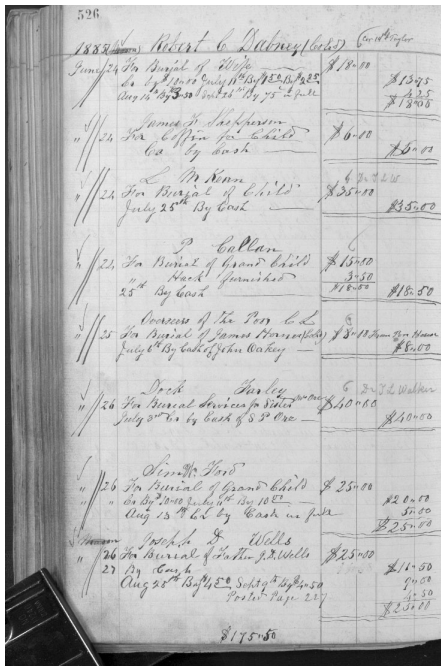 526
1885 Robert C. Dabney (Col'd) Cor 14th & Taylor
June 24 For Burial of Wife $18.00
Cr By $10.00 July 11th By $1.50 By $2.25 $13.75
Aug 14th By $3.50 Sept 26th By 75 in full 4.25
$18.00
James H. Shepperson
" 24 For Coffin for Child $6.00
Cr. by Cash $6.00
L McKenn
" 24 For Burial of Child $35.00
July 25th By Cash $35.00
P. Callan
" 24 For Burial of Grand Child $15.00
" Hack furnished 3.50
25th By Cash $18.50 $18.50
Overseers of the Poor C L
" 25 For Burial of James Horner (Col'd) $8.00 From Poor House
July 6th By Cash of John Oakey $8.00
Dock Farley Dr T L Walker
" 26 For Burial Services for Sister $40.00
July 3rd Cr by Cash of S. P. Ore $40.00
Sim W Ford
" 26 For Burial of Grand Child $25.00
" Cr By $10.00 July 11th By 10.00 $20.00
Aug 13th Cr by Cash in full 5.00
$25.00
Joseph D. Wells
" 26 For Burial of Father J. D. Wells $25.00
27 By Cash $11.50
Aug 25th By $4.50 Sept 9th By $4.50 9.00
Posted Page 227 4.50
$25.00
$175.50